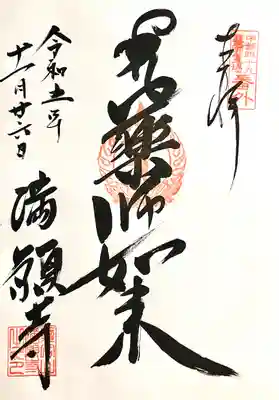 奉拝
番外
薬師如来
令和五年
十一月廿六日
満願寺